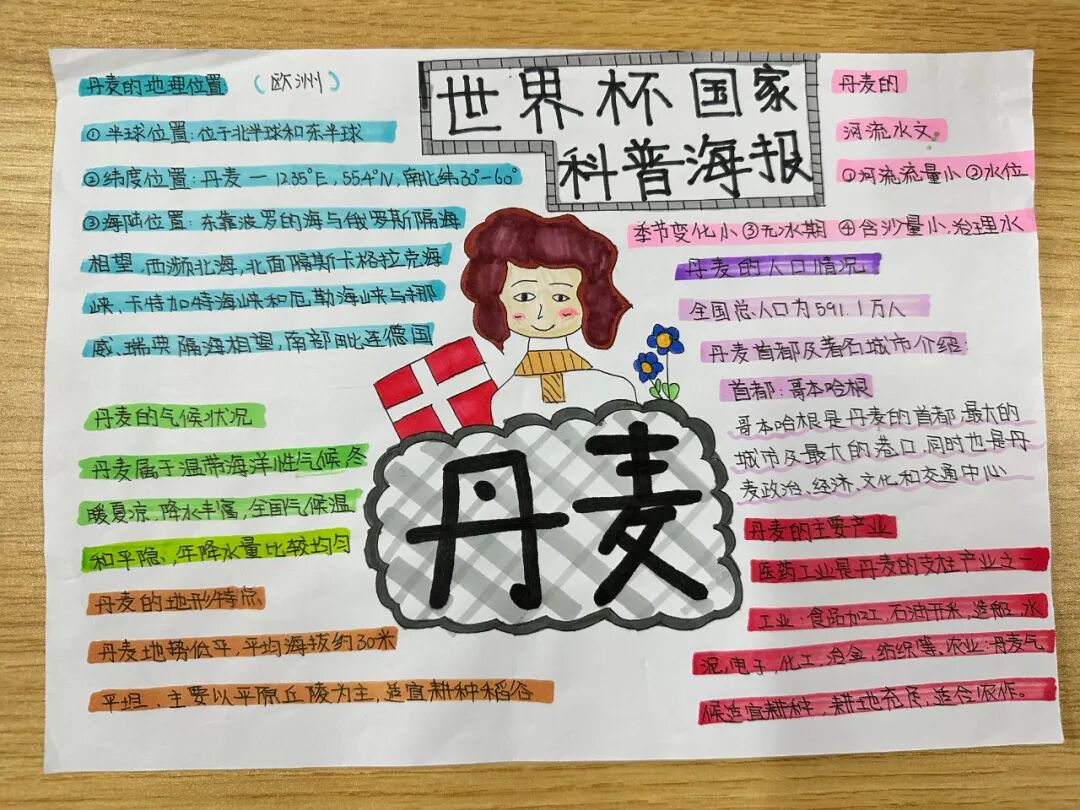 世界杯国家
科普海报
丹麦的地理位置 (欧洲)
①半球位置:位于北半球和东半球
②纬度位置:丹麦一12.35°E,55.4°N,南北纬30°-60°
③海陆位置:东靠波罗的海与俄罗斯隔海
相望,西濒北海,北面隔斯卡格拉克海
峡、卡特加特海峡和厄勒海峡与挪
威、瑞典隔海相望,南部毗连德国
丹麦的气候状况
丹麦属于温带海洋性气候,冬
暖夏凉,降水丰富,全国气候温
和平隐,年降水量比较均匀
丹麦的地形特点
丹麦地势低平,平均海拔约30米
平坦、主要以平原丘陵为主,适宜耕种稻谷
丹麦
丹麦的
河流水文
①河流流量小 ②水位
季节变化小 ③无冰期 ④含沙量小,治理水
丹麦的人口情况
全国总人口为591.1万人
丹麦首都及著名城市介绍:
首都:哥本哈根
哥本哈根是丹麦的首都,最大的
城市及最大的港口,同时也是丹
麦政治、经济、文化和交通中心
丹麦的主要产业
医药工业是丹麦的支柱产业之一
工业:食品加工,石油开采,造船,水
泥,电子,化工,冶金,纺织等,农业:丹麦气
候适宜耕种,耕地充足,适合农作。